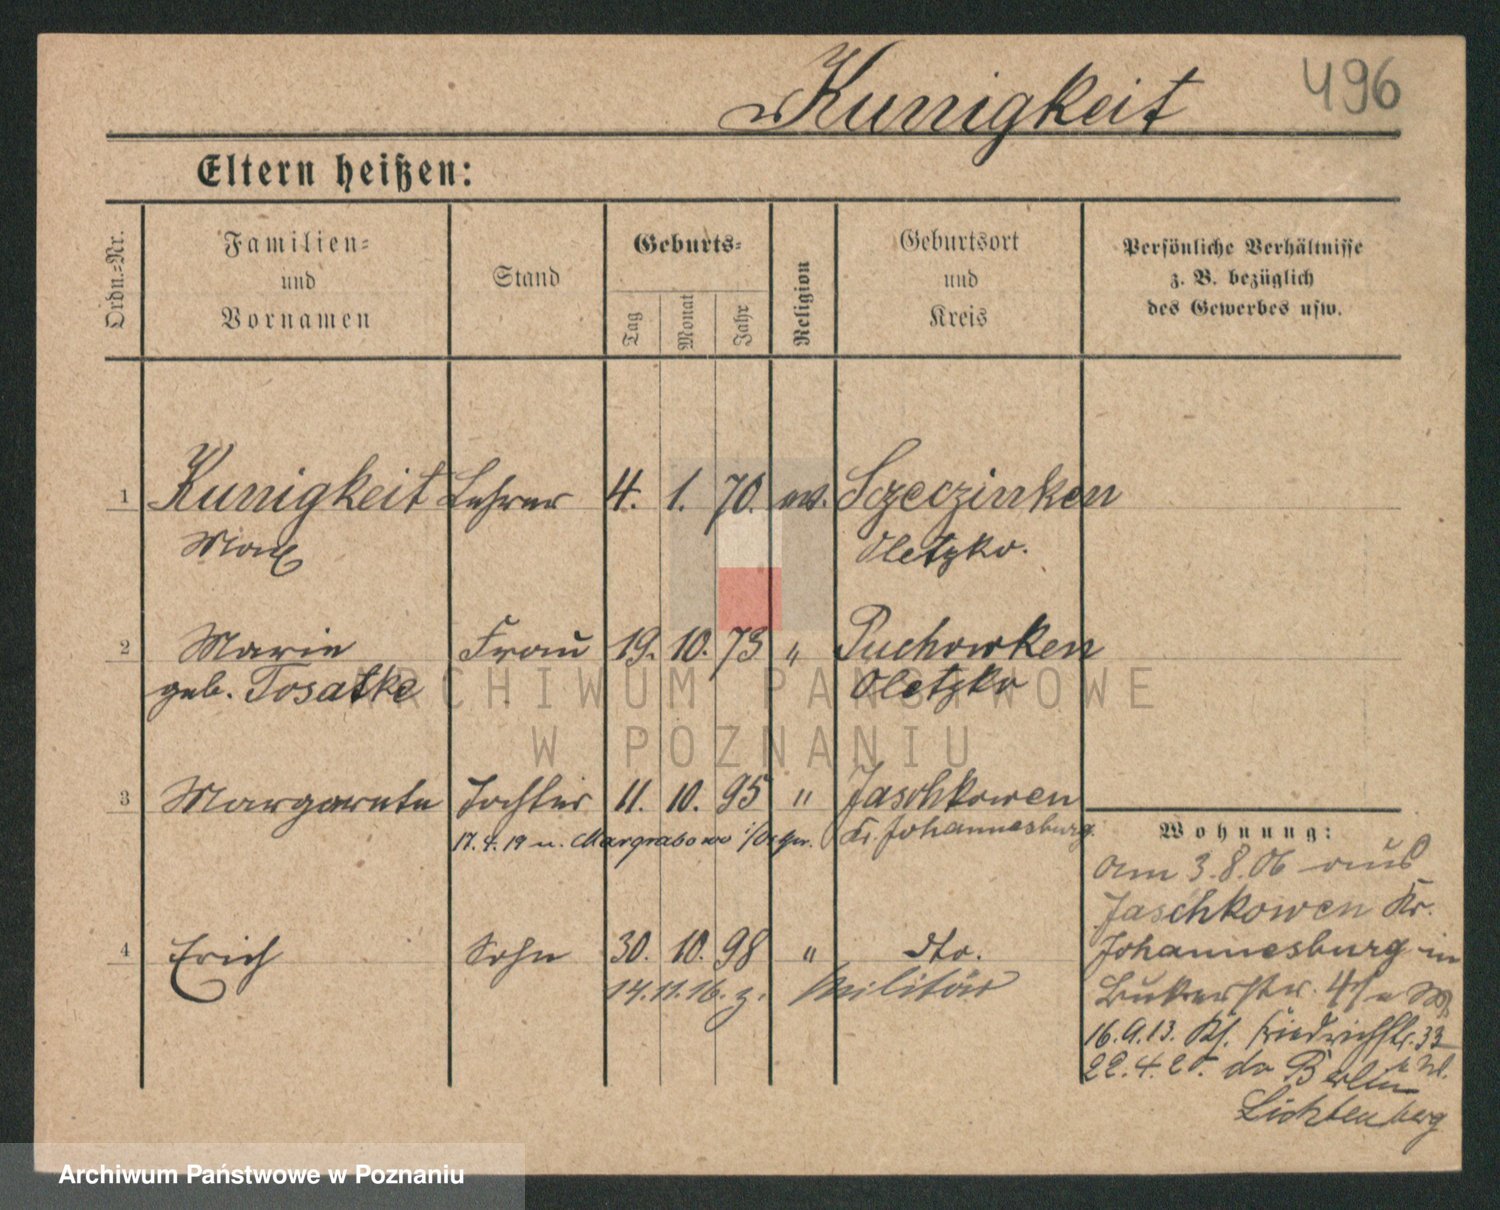 Kunigkeit 496
Eltern heißen:
Ordn.-Nr.
Familien-
und
Vornamen
Stand
Geburts-
Tag
Monat
Jahr
Religion
Geburtsort
und
Kreis
Persönliche Verhältnisse
z. B. bezüglich
des Gewerbes usw.
1 Kunigkeit Lehrer 4. 1. 70. ev. Szeczinken
Max Oletzko.
2 Marie Frau 19. 10. 73 " Puchowken
geb. Tosatke Oletzko
ARCHIWUM PAŃSTWOWE
W POZNANIU
3 Margarete Tochter 11. 10. 95 " Jaschkowen
17.4.19 n. Margrabowo Kr. Johannesburg.
4 Erich Sohn 30. 10. 98 " dto.
14.11.16. z. Militär
Wohnung:
am 3.8.06 aus
Jaschkowen Kr.
Johannesburg in
16.9.13. Friedrichstr. 33
22.4.20. Berlin
Lichtenberg
Archiwum Państwowe w Poznaniu